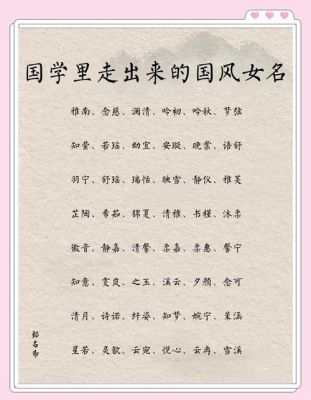 国学里走出来的国风女名
雅南、念慈、澜清、吟初、吟秋、梦弦
知莹、若瑶、幼宜、安璇、晚棠、语舒
羽宁、舒瑶、瑞恬、映雪、静仪、雅芙
芷陶、希茹、锦夏、清雅、书槿、沐柔
徽音、静嘉、清馨、柔嘉、柔惠、馨宁
知意、雯岚、之玉、溪云、夕颜、念可
清月、诗诺、纤姿、知梦、婉宁、茉涵
星若、灵歌、云宛、悦心、云冉、雪溪